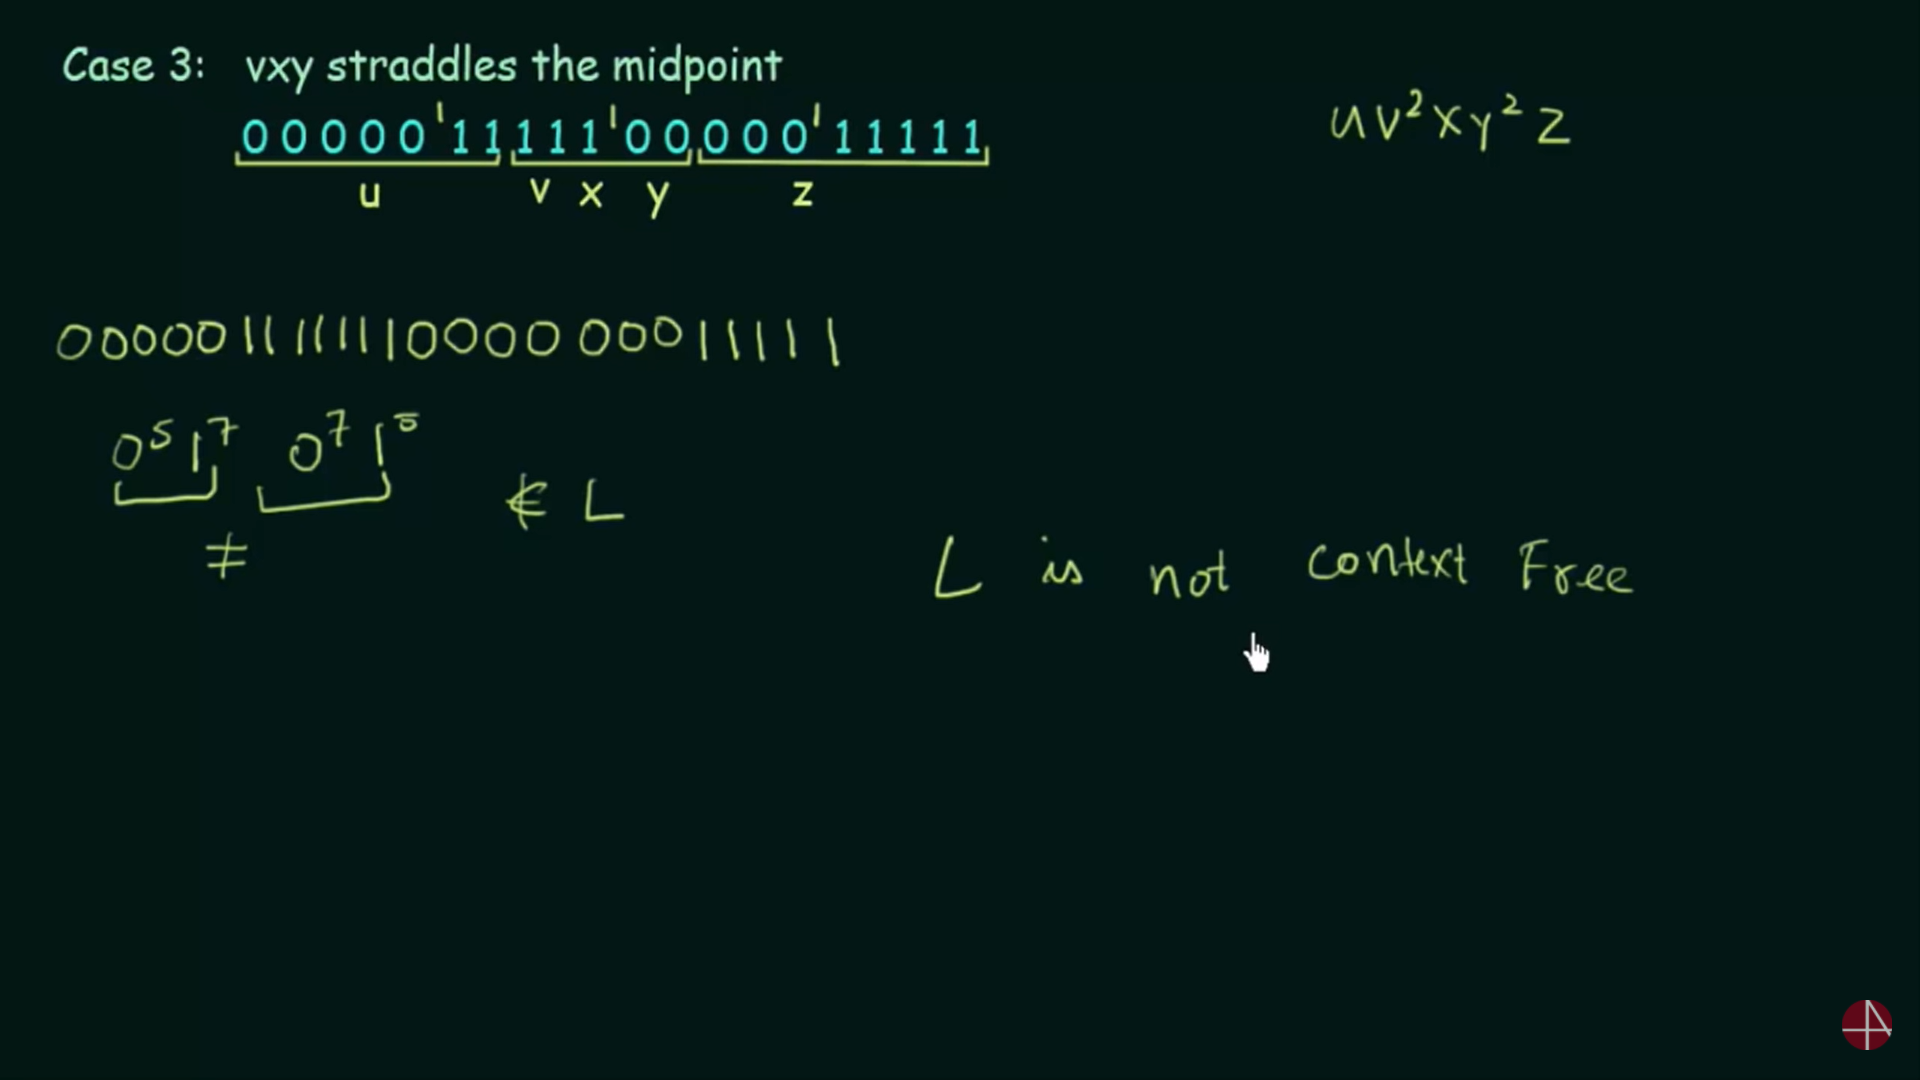 Case 3: vxy straddles the midpoint
00000'11111'00000'11111
u v x y z
uv²xy²z
000001111111000000011111
0⁵1⁷ 0⁷1⁵ ∉ L
≠
L is not Context Free